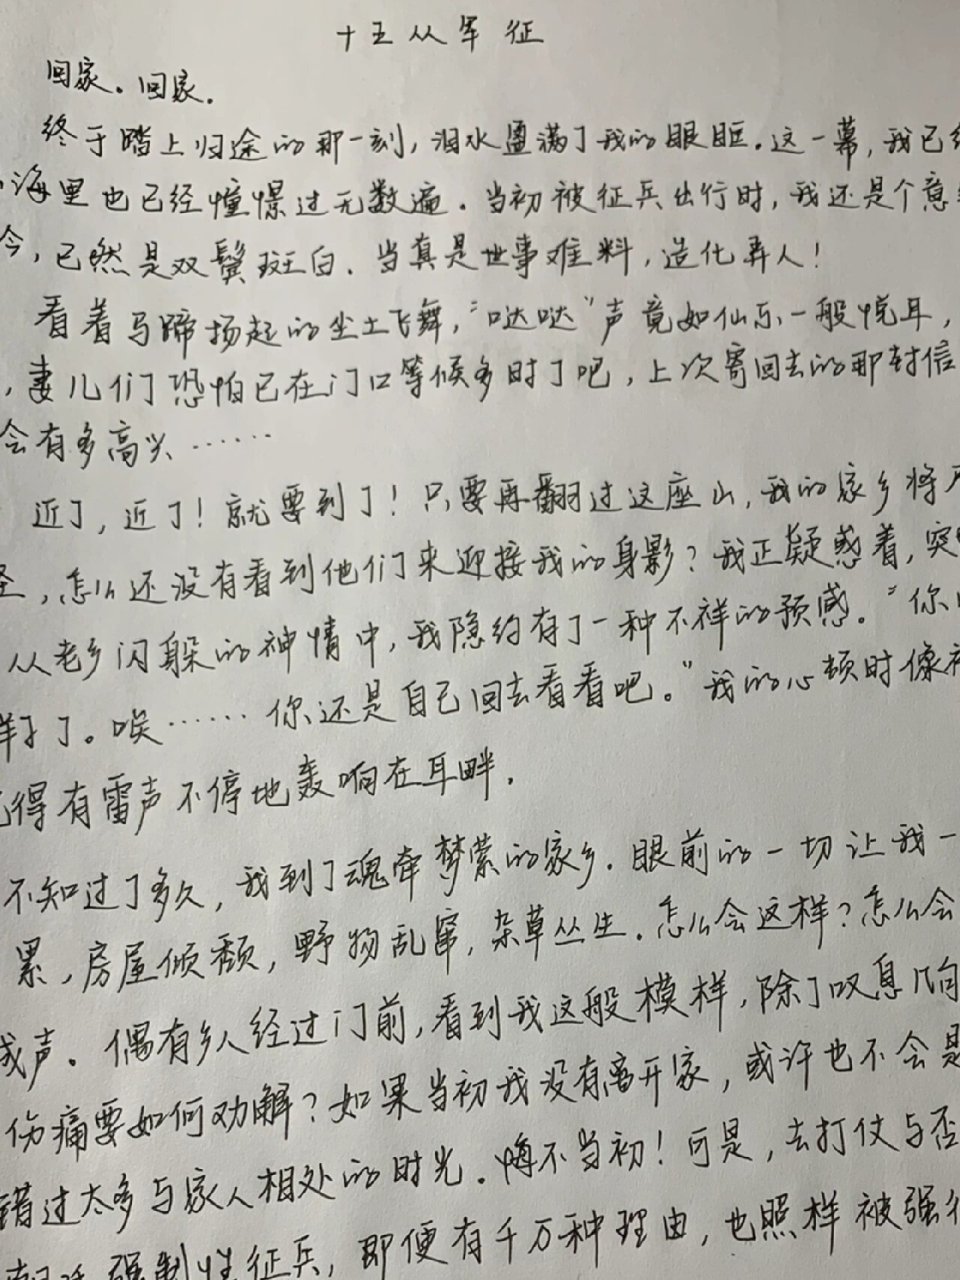 十五从军征
回家。回家。
终于踏上归途的那一刻，泪水盈满了我的眼眶。这一幕，我已经
海里也已经憧憬过无数遍。当初被征兵出行时，我还是个意
今，已然是双鬓斑白。当真是世事难料，造化弄人！
看着马蹄扬起的尘土飞舞，“哒哒”声竟如仙乐一般悦耳，
，妻儿们恐怕已在门口等候多时了吧，上次寄回去的那封信
会有多高兴……
近了，近了！就要到了！只要再翻过这座山，我的家乡将
怪，怎么还没有看到他们来迎接我的身影？我正疑惑着，突
从老乡闪躲的神情中，我隐约有了一种不祥的预感。“你
样子了。唉……你还是自己回去看看吧。”我的心顿时像被
觉得有雷声不停地轰响在耳畔。
不知过了多久，我到了魂牵梦萦的家乡。眼前的一切让我一
累，房屋倾颓，野物乱窜，杂草丛生。怎么会这样？怎么会
成声。偶有乡人经过门前，看到我这般模样，除了叹息几声
伤痛要如何劝解？如果当初我没有离开家，或许也不会是
错过太多与家人相处的时光。悔不当初！可是，去打仗与否
强制性征兵，即便有千万种理由，也照样被强行